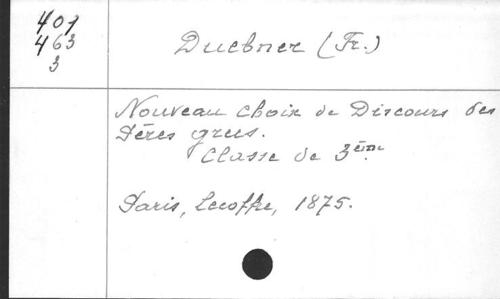 401
463
3
Duebner (Fr.)
Nouveau choix de Discours des
Pères grecs.
Classe de 3ème.
Paris, Lecoffre, 1875.